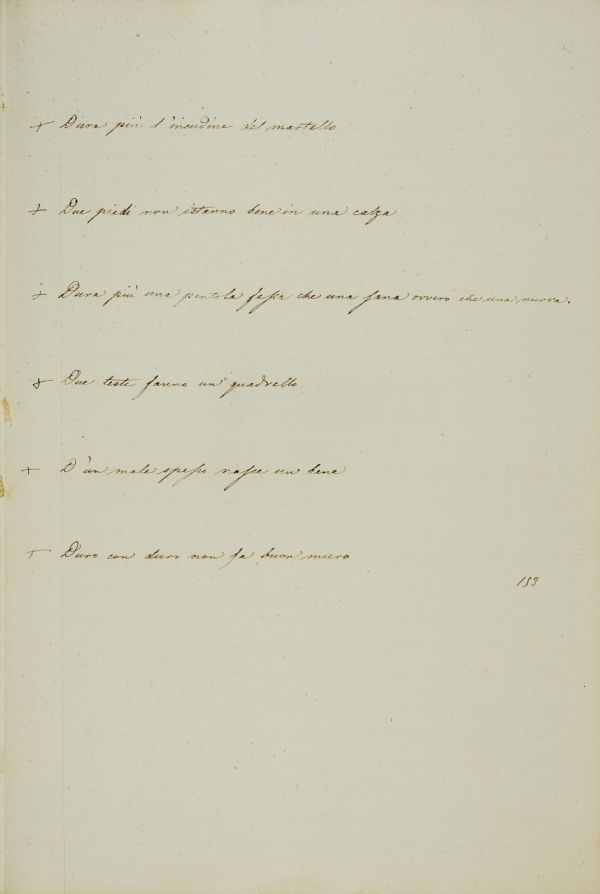 + Dura più l'incudine del martello
+ Due piedi non istanno bene in una calza
+ Dura più una pentola fessa che una sana ovvero che una nuova.
+ Due teste fanno un quadrello
+ D'un male spesso nasce un bene
+ Duro con duro non fa buon muro
153